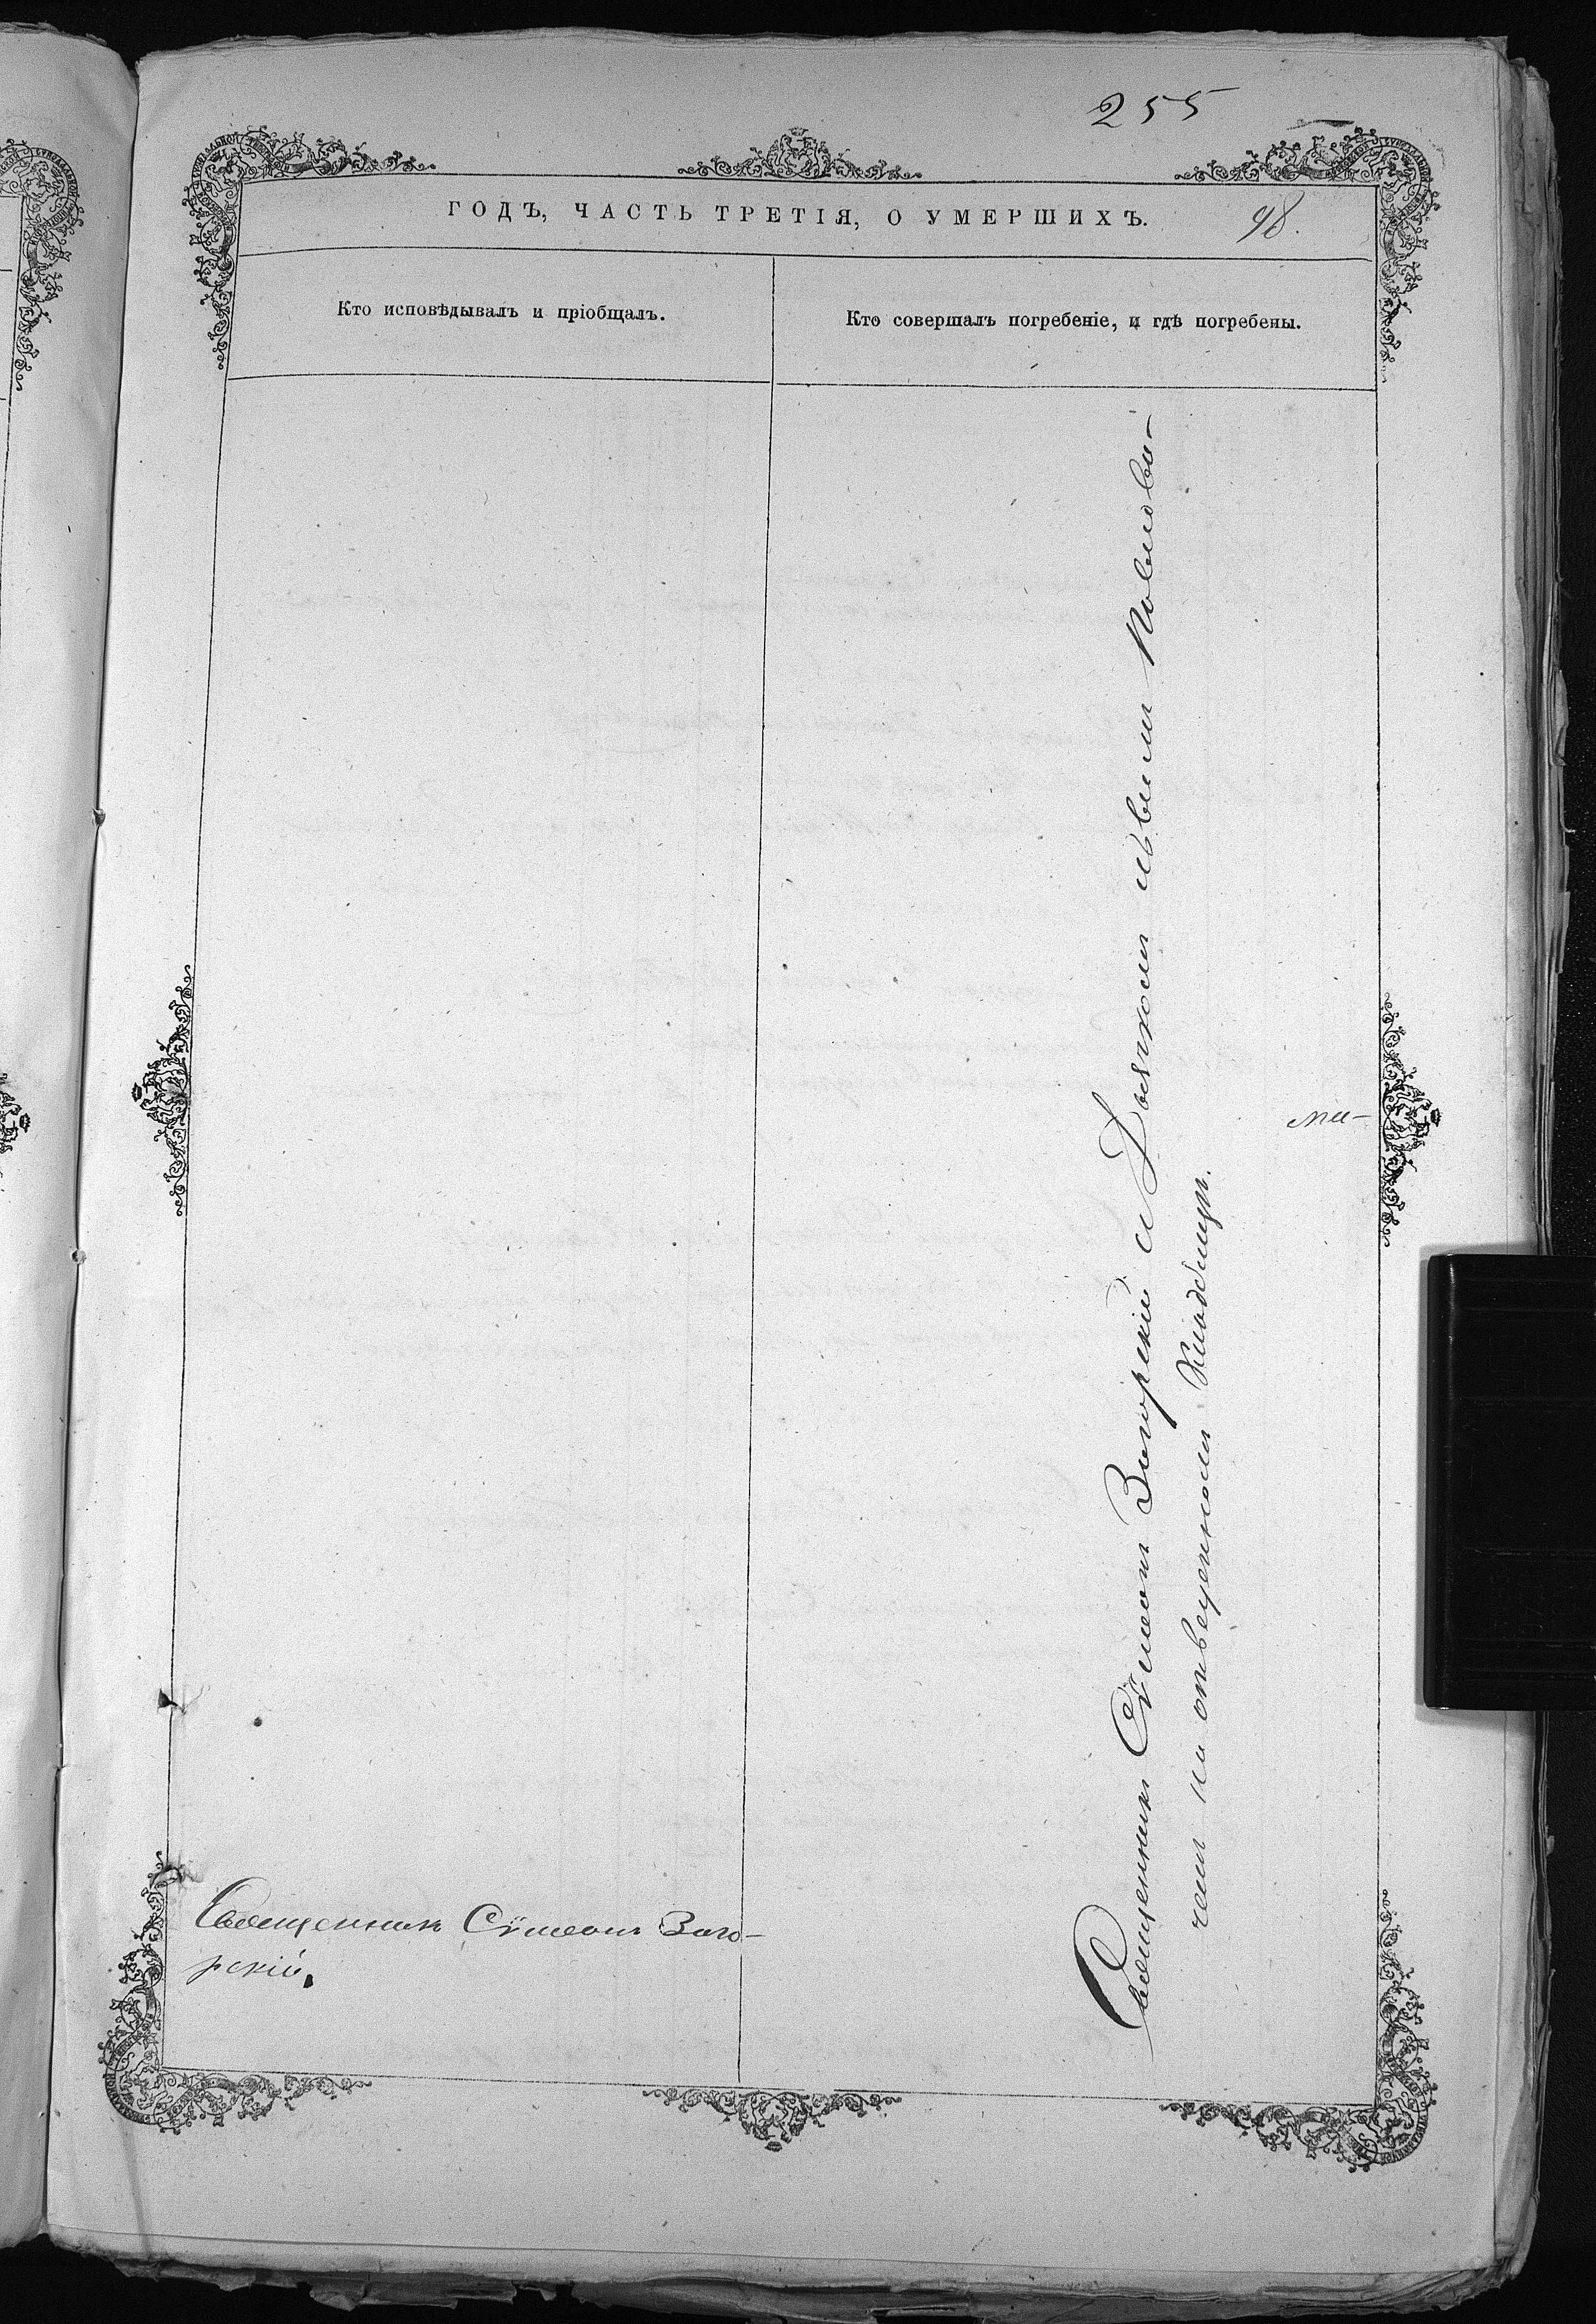 255
ГОДЪ, ЧАСТЬ ТРЕТІЯ, О УМЕРШИХЪ.
98.
Кто исповѣдывалъ и пріобщалъ.
Кто совершалъ погребеніе, и гдѣ погребены.
Священникъ Сѵмеонъ Заго-
рскій.
Священникъ Сѵмеонъ Загорскій съ Дьячкомъ
на отведенномъ Кладбищѣ.